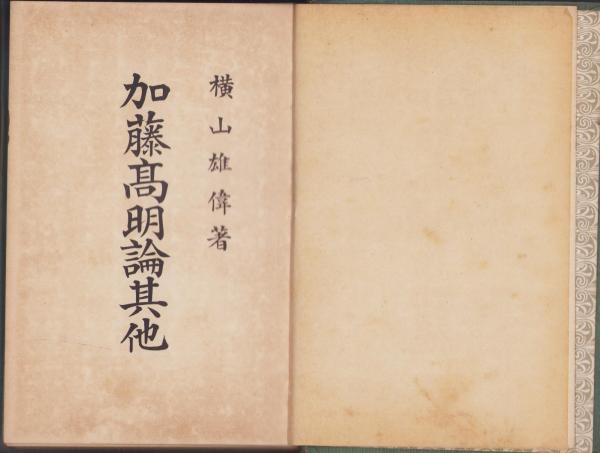 横山雄偉著
加藤髙明論其他